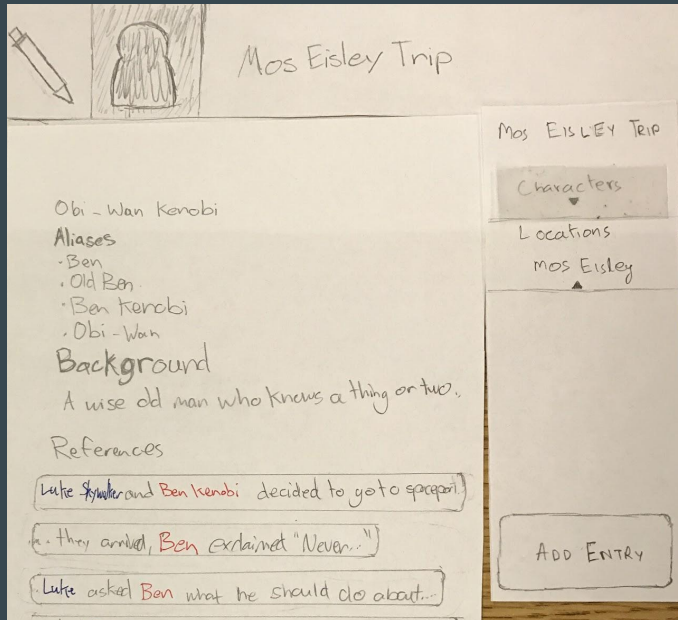 Mos Eisley Trip
Obi-Wan Kenobi
Aliases
· Ben
· Old Ben
· Ben Kenobi
· Obi-Wan
Background
A wise old man who knows a thing or two.
References
Luke Skywalker and Ben Kenobi decided to go to spaceport.
... they arrived, Ben exclaimed "Never..."
Luke asked Ben what he should do about...
Mos EISLEY TRIP
Characters
Locations
Mos Eisley
ADD ENTRY